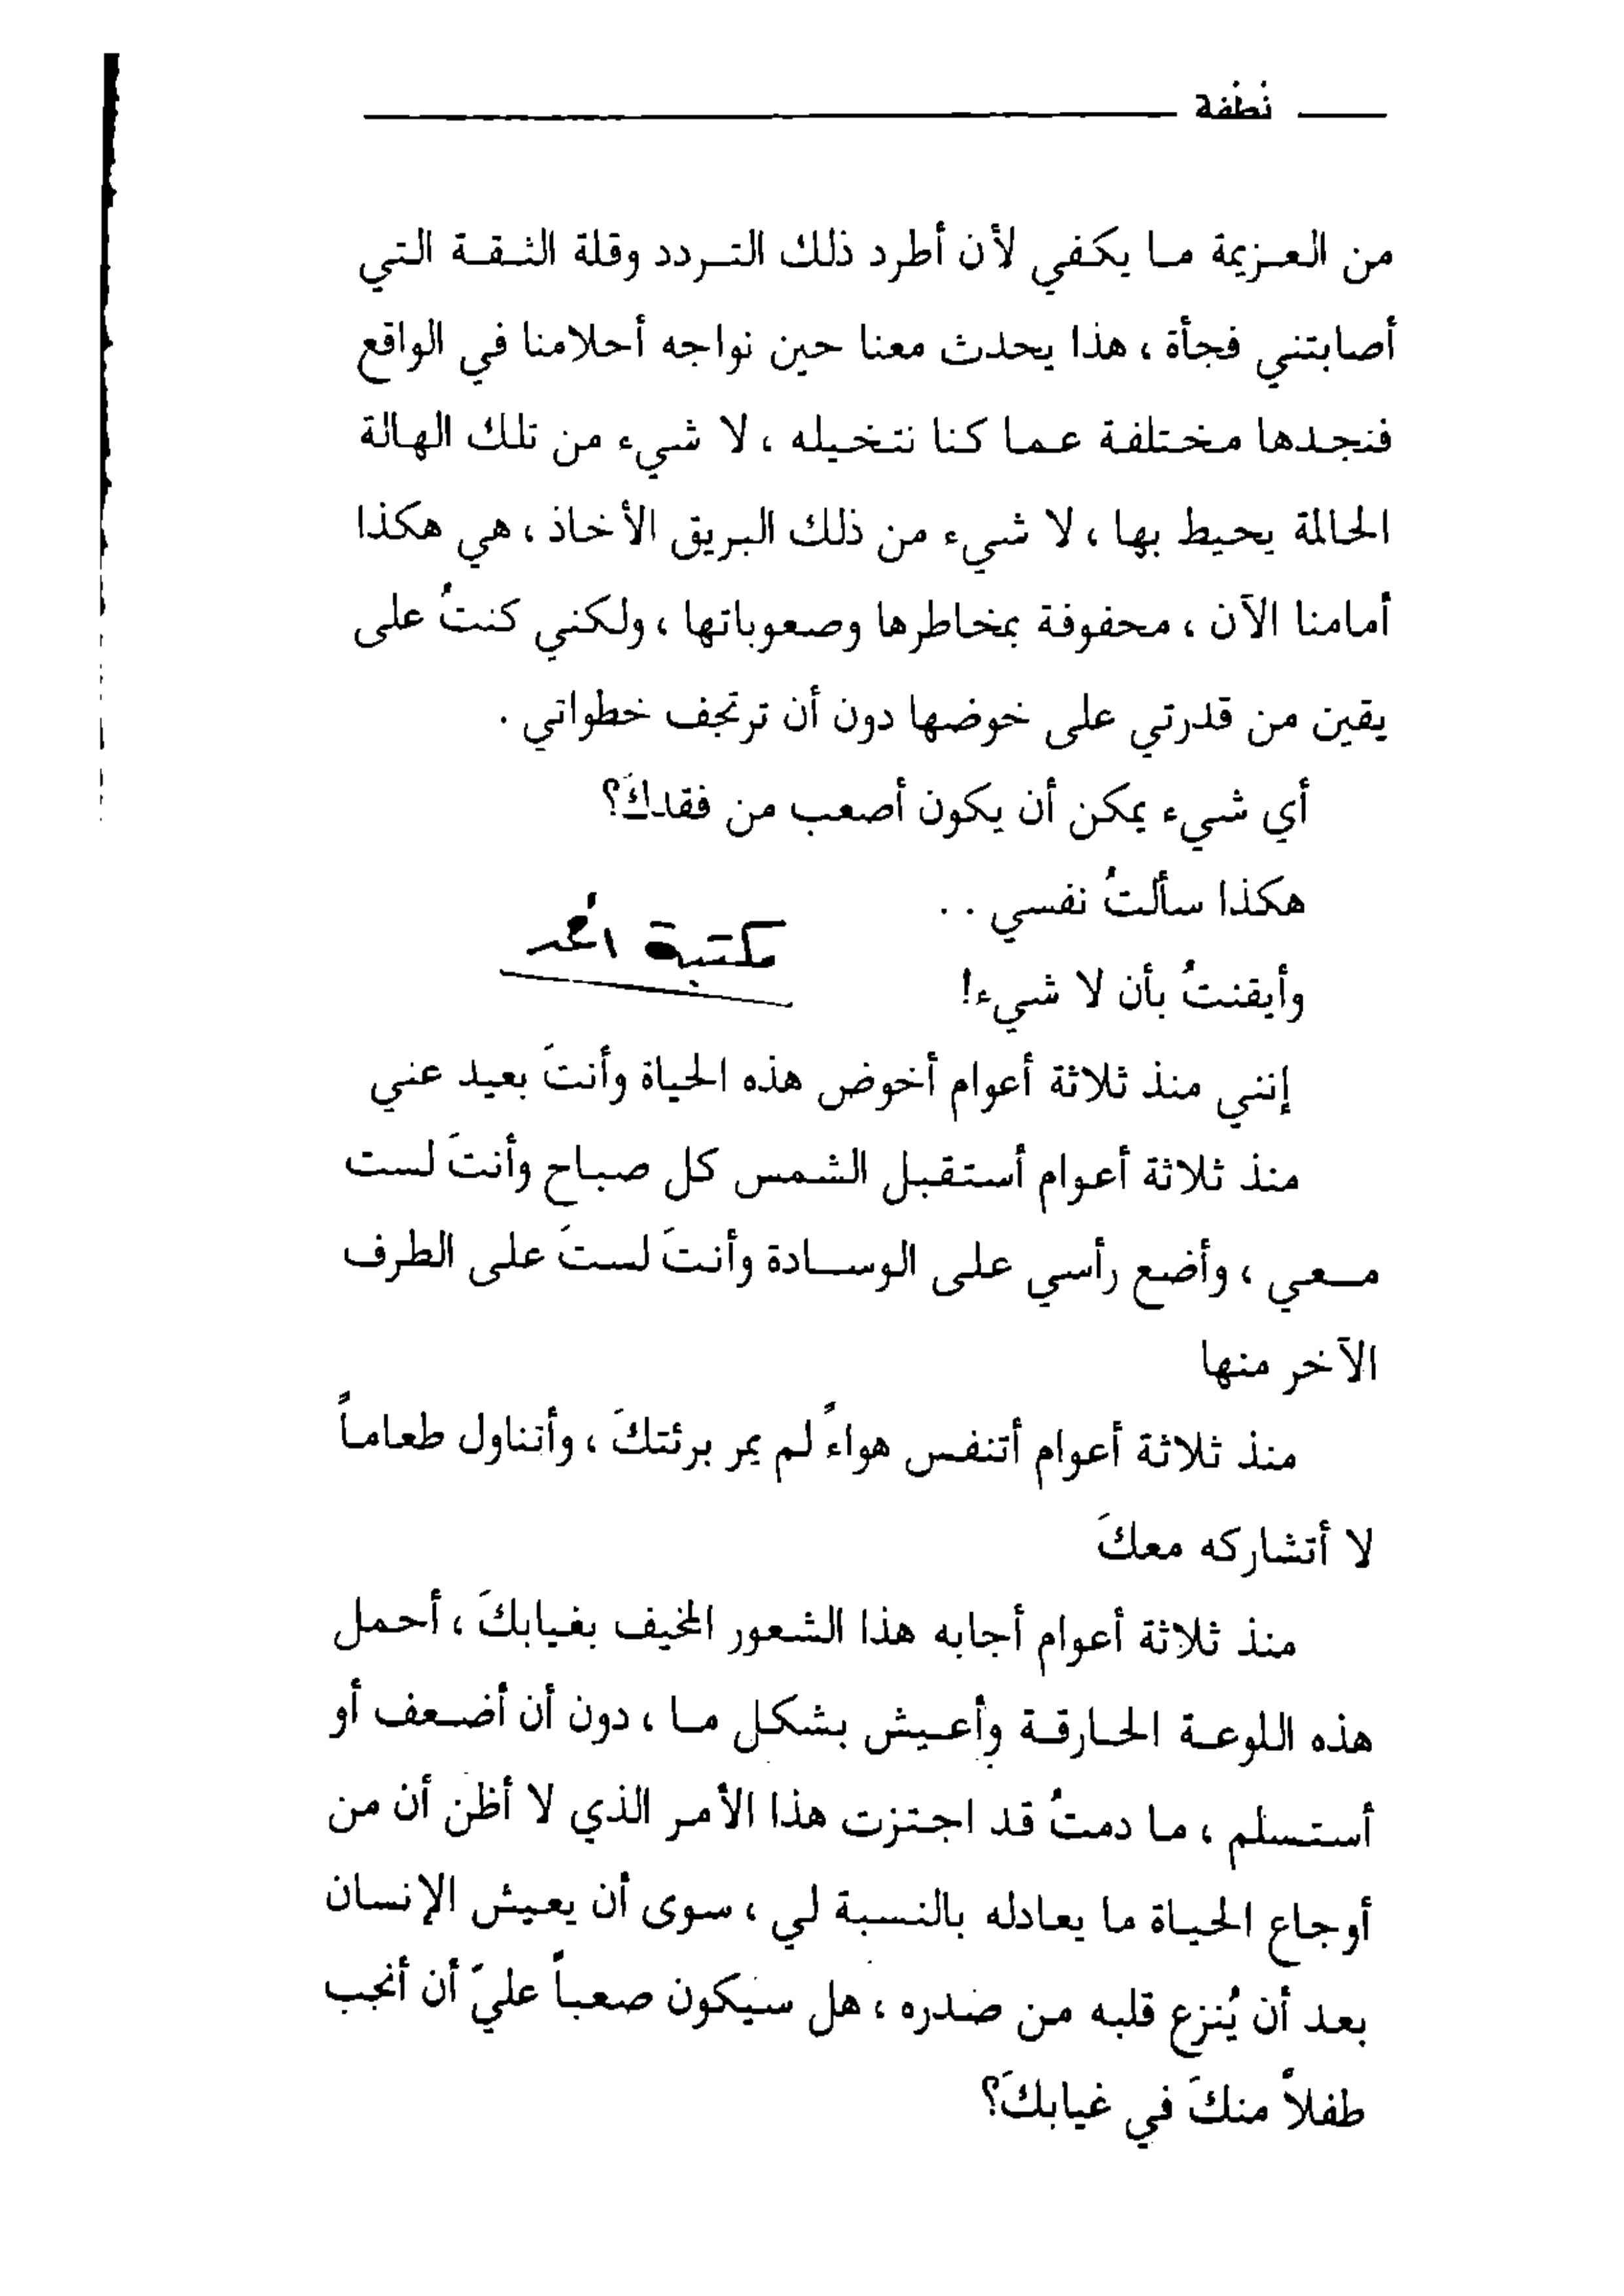 نطفة
من العزيمة ما يكفي لأن أطرد ذلك التردد وقلة الثقة التي
أصابتني فجأة ، هذا يحدث معنا حين نواجه أحلامنا في الواقع
فنجدها مختلفة عما كنا نتخيله ، لا شيء من تلك الهالة
الحالمة يحيط بها ، لا شيء من ذلك البريق الأخاذ ، هي هكذا
أمامنا الآن ، محفوفة بمخاطرها وصعوباتها ، ولكني كنتُ على
يقين من قدرتي على خوضها دون أن ترتجف خطواتي .
أي شيء يمكن أن يكون أصعب من فقدكَ؟
هكذا سألتُ نفسي . .
مكتبة
وأيقنتُ بأن لا شيء!
إنني منذ ثلاثة أعوام أخوض هذه الحياة وأنتَ بعيد عني
منذ ثلاثة أعوام أستقبل الشمس كل صباح وأنتَ لست
معي ، وأضع رأسي على الوسادة وأنتَ لستَ على الطرف
الآخر منها
منذ ثلاثة أعوام أتنفس هواءً لم يمر برئتكَ ، وأتناول طعاماً
لا أتشاركه معكَ
منذ ثلاثة أعوام أجابه هذا الشعور المخيف بغيابكَ ، أحمل
هذه اللوعة الحارقة وأعيش بشكل ما ، دون أن أضعف أو
أستسلم ، ما دمتُ قد اجتزت هذا الأمر الذي لا أظن أن من
أوجاع الحياة ما يعادله بالنسبة لي ، سوى أن يعيش الإنسان
بعد أن يُنزع قلبه من صدره ، هل سيكون صعباً عليّ أن أنجب
طفلاً منكَ في غيابكَ؟